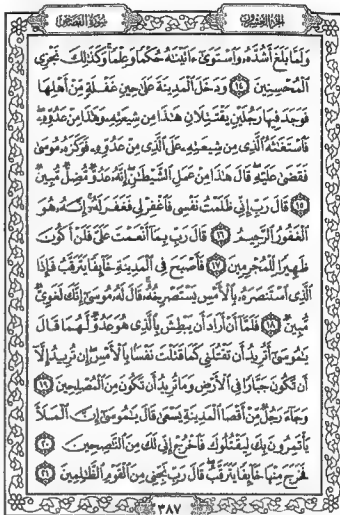 سورة القصص الجزء العشرون
وَلَمَّا بَلَغَ أَشُدَّهُۥ وَٱسْتَوَىٰٓ ءَاتَيْنَٰهُ حُكْمًا وَعِلْمًا ۚ وَكَذَٰلِكَ نَجْزِى
ٱلْمُحْسِنِينَ ١٤ وَدَخَلَ ٱلْمَدِينَةَ عَلَىٰ حِينِ غَفْلَةٍ مِّنْ أَهْلِهَا
فَوَجَدَ فِيهَا رَجُلَيْنِ يَقْتَتِلَانِ هَٰذَا مِن شِيعَتِهِۦ وَهَٰذَا مِنْ عَدُوِّهِۦ ۖ
فَٱسْتَغَٰثَهُ ٱلَّذِى مِن شِيعَتِهِۦ عَلَى ٱلَّذِى مِنْ عَدُوِّهِۦ فَوَكَزَهُۥ مُوسَىٰ
فَقَضَىٰ عَلَيْهِ ۖ قَالَ هَٰذَا مِنْ عَمَلِ ٱلشَّيْطَٰنِ ۖ إِنَّهُۥ عَدُوٌّ مُّضِلٌّ مُّبِينٌ
١٥ قَالَ رَبِّ إِنِّى ظَلَمْتُ نَفْسِى فَٱغْفِرْ لِى فَغَفَرَ لَهُۥٓ ۚ إِنَّهُۥ هُوَ
ٱلْغَفُورُ ٱلرَّحِيمُ ١٦ قَالَ رَبِّ بِمَآ أَنْعَمْتَ عَلَىَّ فَلَنْ أَكُونَ
ظَهِيرًا لِّلْمُجْرِمِينَ ١٧ فَأَصْبَحَ فِى ٱلْمَدِينَةِ خَآئِفًا يَتَرَقَّبُ فَإِذَا
ٱلَّذِى ٱسْتَنصَرَهُۥ بِٱلْأَمْسِ يَسْتَصْرِخُهُۥ ۚ قَالَ لَهُۥ مُوسَىٰٓ إِنَّكَ لَغَوِىٌّ
مُّبِينٌ ١٨ فَلَمَّآ أَنْ أَرَادَ أَن يَبْطِشَ بِٱلَّذِى هُوَ عَدُوٌّ لَّهُمَا قَالَ
يَٰمُوسَىٰٓ أَتُرِيدُ أَن تَقْتُلَنِى كَمَا قَتَلْتَ نَفْسًۢا بِٱلْأَمْسِ ۖ إِن تُرِيدُ إِلَّآ
أَن تَكُونَ جَبَّارًا فِى ٱلْأَرْضِ وَمَا تُرِيدُ أَن تَكُونَ مِنَ ٱلْمُصْلِحِينَ ١٩
وَجَآءَ رَجُلٌ مِّنْ أَقْصَا ٱلْمَدِينَةِ يَسْعَىٰ قَالَ يَٰمُوسَىٰٓ إِنَّ ٱلْمَلَأَ
يَأْتَمِرُونَ بِكَ لِيَقْتُلُوكَ فَٱخْرُجْ إِنِّى لَكَ مِنَ ٱلنَّٰصِحِينَ ٢٠
فَخَرَجَ مِنْهَا خَآئِفًا يَتَرَقَّبُ ۖ قَالَ رَبِّ نَجِّنِى مِنَ ٱلْقَوْمِ ٱلظَّٰلِمِينَ ٢١
٣٨٧